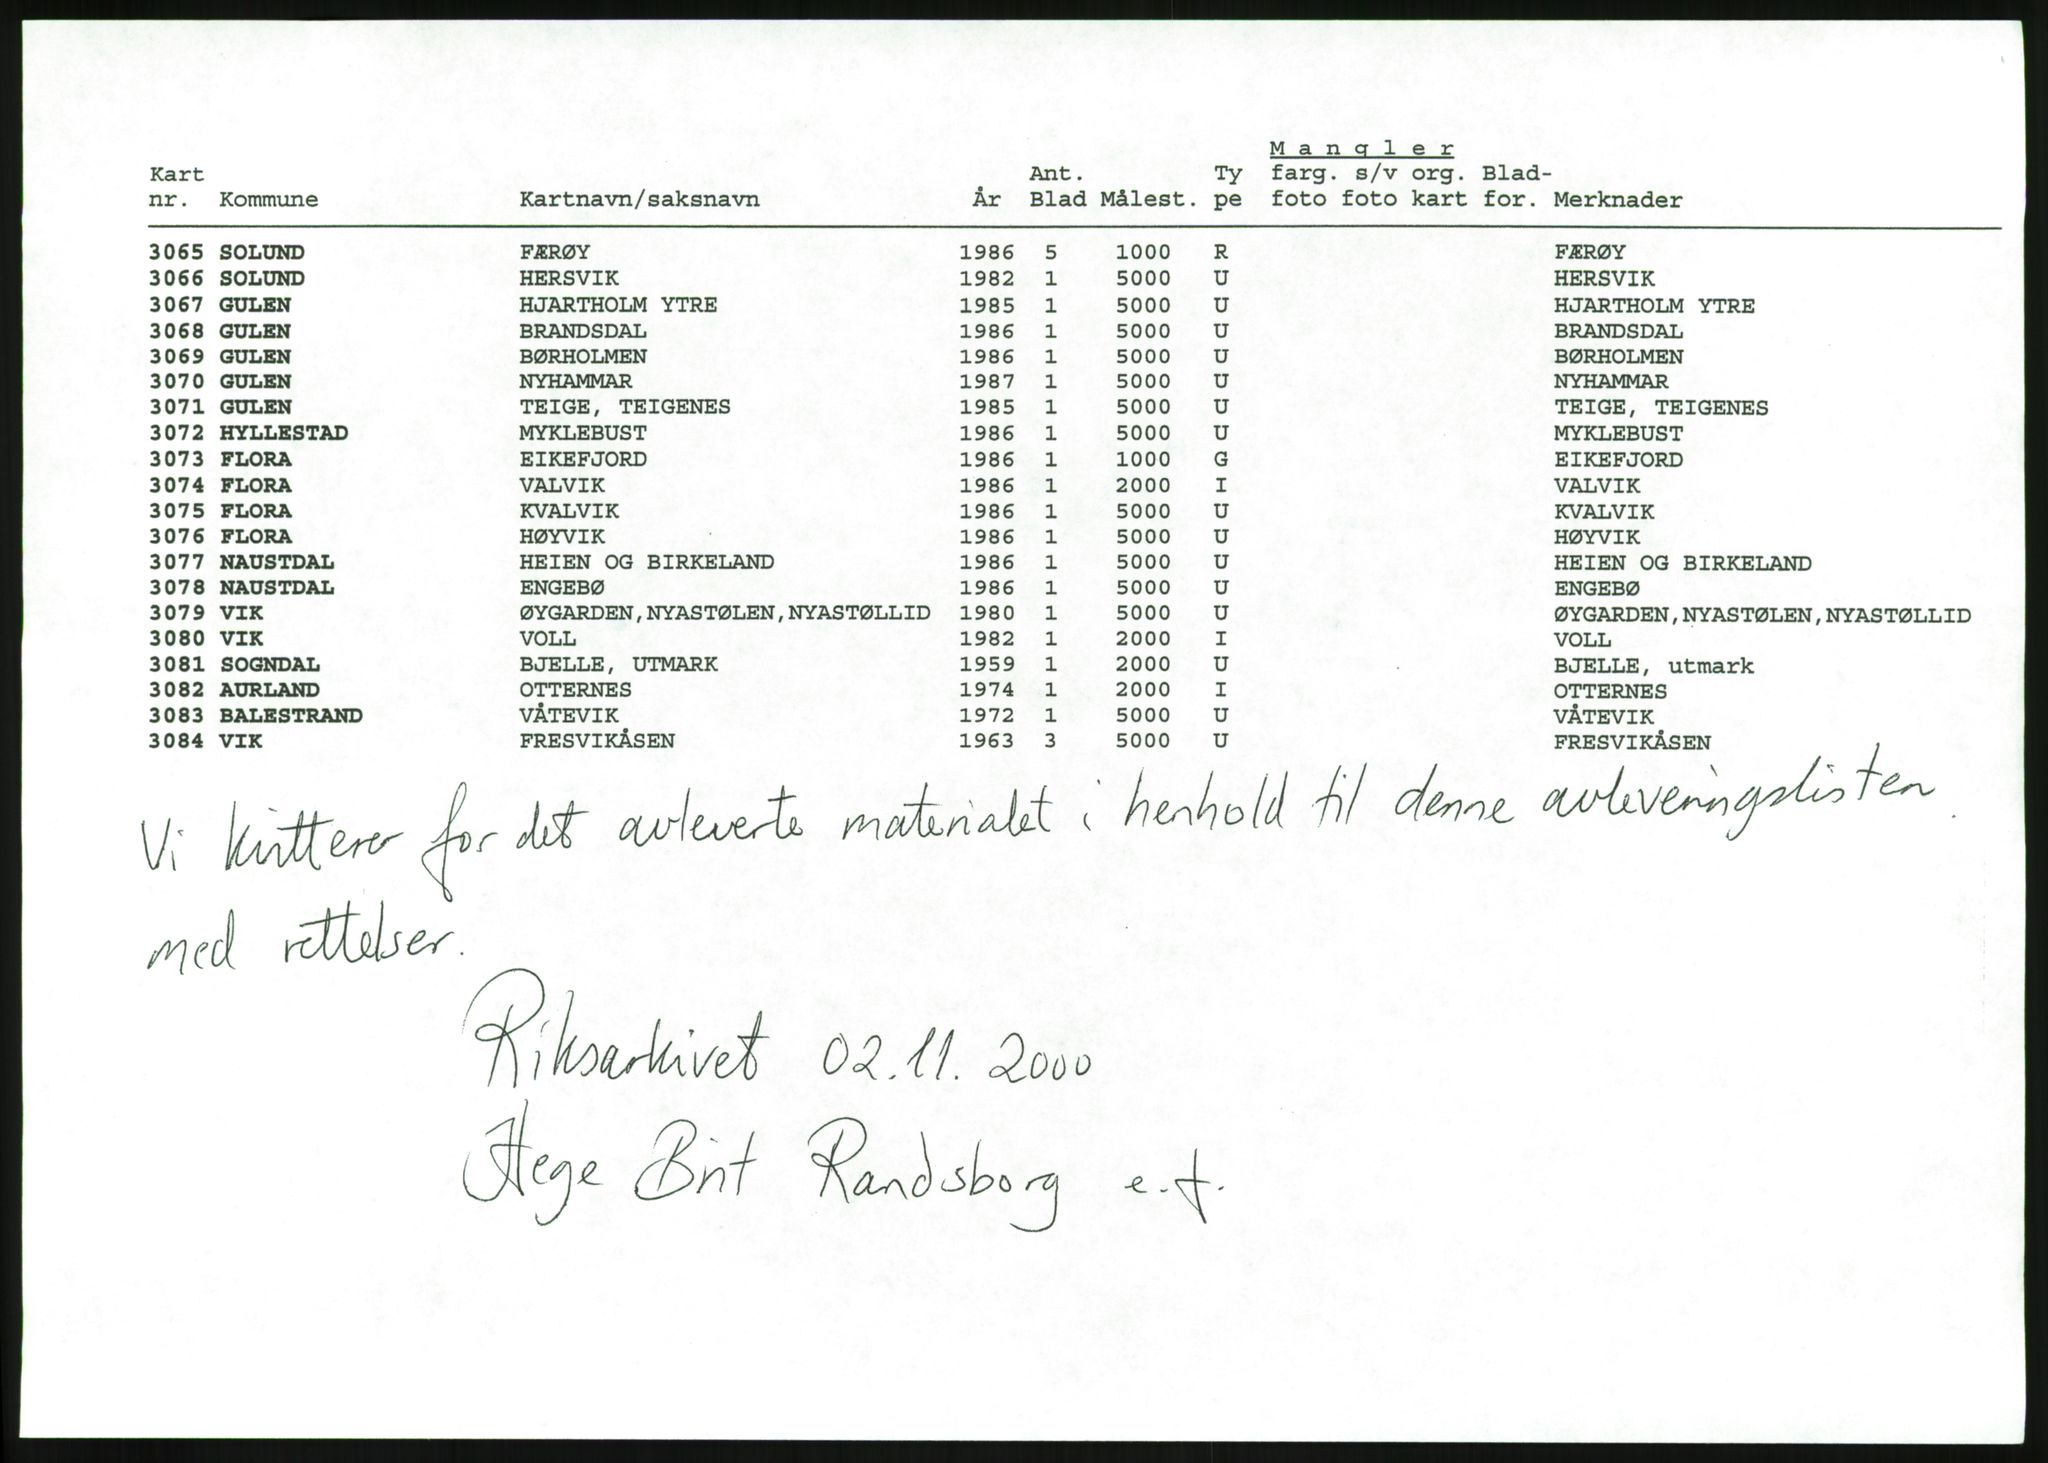 M a n g l e r
Kart Ant. Ty farg. s/v org. Blad-
nr. Kommune Kartnavn/saksnavn År Blad Målest. pe foto foto kart for. Merknader
3065 SOLUND FÆRØY 1986 5 1000 R FÆRØY
3066 SOLUND HERSVIK 1982 1 5000 U HERSVIK
3067 GULEN HJARTHOLM YTRE 1985 1 5000 U HJARTHOLM YTRE
3068 GULEN BRANDSDAL 1986 1 5000 U BRANDSDAL
3069 GULEN BØRHOLMEN 1986 1 5000 U BØRHOLMEN
3070 GULEN NYHAMMAR 1987 1 5000 U NYHAMMAR
3071 GULEN TEIGE, TEIGENES 1985 1 5000 U TEIGE, TEIGENES
3072 HYLLESTAD MYKLEBUST 1986 1 5000 U MYKLEBUST
3073 FLORA EIKEFJORD 1986 1 1000 G EIKEFJORD
3074 FLORA VALVIK 1986 1 2000 I VALVIK
3075 FLORA KVALVIK 1986 1 5000 U KVALVIK
3076 FLORA HØYVIK 1986 1 5000 U HØYVIK
3077 NAUSTDAL HEIEN OG BIRKELAND 1986 1 5000 U HEIEN OG BIRKELAND
3078 NAUSTDAL ENGEBØ 1986 1 5000 U ENGEBØ
3079 VIK ØYGARDEN,NYASTØLEN,NYASTØLLID 1980 1 5000 U ØYGARDEN,NYASTØLEN,NYASTØLLID
3080 VIK VOLL 1982 1 2000 I VOLL
3081 SOGNDAL BJELLE, UTMARK 1959 1 2000 U BJELLE, utmark
3082 AURLAND OTTERNES 1974 1 2000 I OTTERNES
3083 BALESTRAND VÅTEVIK 1972 1 5000 U VÅTEVIK
3084 VIK FRESVIKÅSEN 1963 3 5000 U FRESVIKÅSEN
Vi kvitterer for det avleverte materialet i henhold til denne avleveringslisten
med rettelser.
Riksarkivet 02.11.2000
Hege Brit Randsborg e.f.